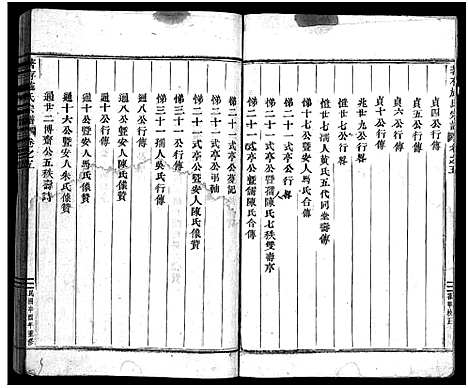 貞四公行傳
貞五公行傳
貞六公行傳
貞十二公行傳
兆世九公行傳
愷世七公行傳
愷世七孺人黃氏五代同堂壽傳
悌十七公暨安人馬氏合傳
悌二十一式亭公行畧
悌二十一式亭公暨安人陳氏七秩雙壽序
悌二十一式亭公暨孺陳氏合傳
人
悌二十一式亭公墓記
悌二十一式亭公弔軸
悌二十一式亭公暨安人陳氏像贊
悌三十一公行傳
悌三十一孺人吳氏行傳
通八公行傳
通八公暨安人陳氏像贊
通十六公暨安人馬氏像贊
通十六公暨安人朱氏像贊
通廿二博齋公五秩壽詩
民國辛酉年重修